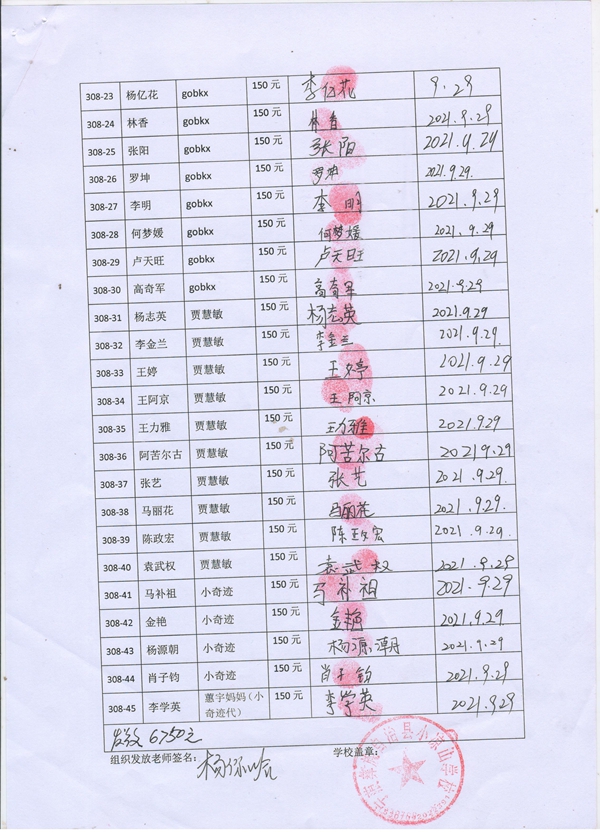 308-23 杨亿花 gobkx 150 元 李亿花 9.29
308-24 林香 gobkx 150 元 林香 2021.9.29
308-25 张阳 gobkx 150 元 张阳 2021.9.29
308-26 罗坤 gobkx 150 元 罗坤 2021.9.29.
308-27 李明 gobkx 150 元 李明 2021.9.29
308-28 何梦媛 gobkx 150 元 何梦媛 2021.9.29
308-29 卢天旺 gobkx 150 元 卢天旺 2021.9.29
308-30 高奇军 gobkx 150 元 高奇军 2021.9.29
308-31 杨志英 贾慧敏 150 元 杨志英 2021.9.29
308-32 李金兰 贾慧敏 150 元 李金兰 2021.9.29.
308-33 王婷 贾慧敏 150 元 王婷 2021.9.29
308-34 王阿京 贾慧敏 150 元 王阿京 2021.9.29
308-35 王力雅 贾慧敏 150 元 王力雅 2021.9.29
308-36 阿苦尔古 贾慧敏 150 元 阿苦尔古 2021.9.29
308-37 张艺 贾慧敏 150 元 张艺 2021.9.29.
308-38 马丽花 贾慧敏 150 元 马丽花 2021.9.29.
308-39 陈政宏 贾慧敏 150 元 陈政宏 2021.9.29.
308-40 袁武权 贾慧敏 150 元 袁武权 2021.9.29
308-41 马补祖 小奇迹 150 元 马补祖 2021.9.29
308-42 金艳 小奇迹 150 元 金艳 2021.9.29
308-43 杨源朝 小奇迹 150 元 杨源潮 2021.9.29
308-44 肖子钧 小奇迹 150 元 肖子钧 2021.9.29
308-45 李学英 蕙宇妈妈（小奇迹代） 150 元 李学英 2021.9.29
发放 6750元
组织发放老师签名： 学校盖章：